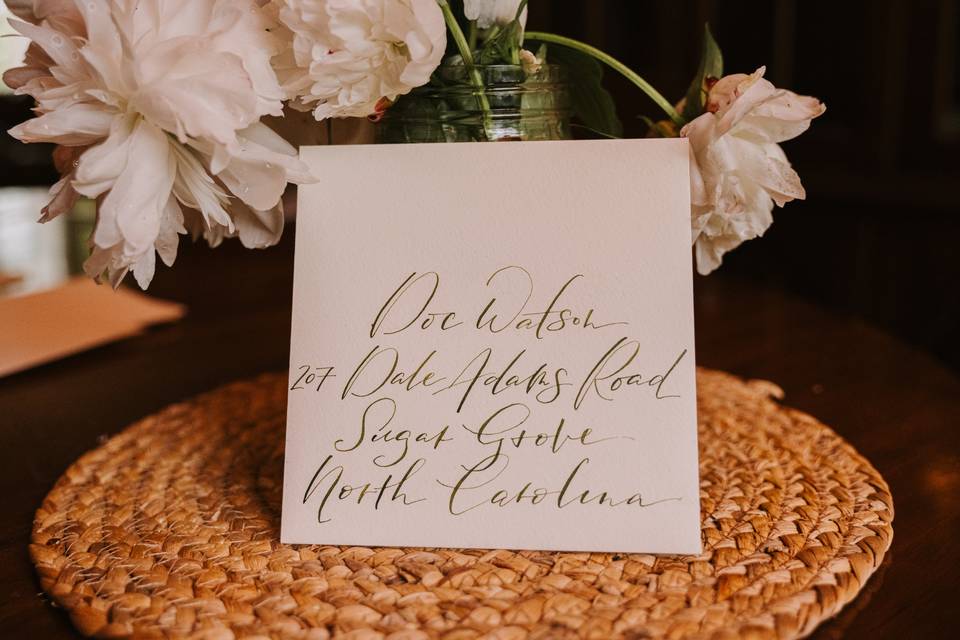 Doc Watson
207 Dale Adams Road
Sugar Grove
North Carolina